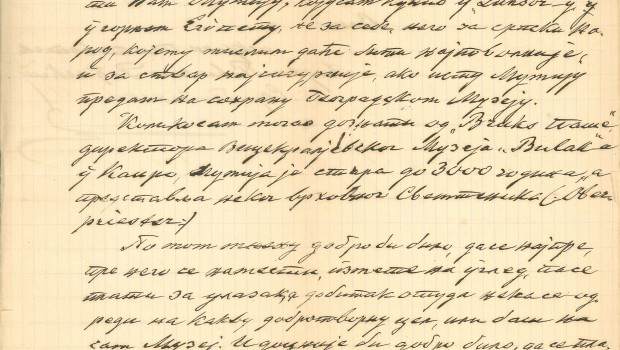 ти Вам Мумију, којусам купио у „Luksor-у" у
у горњем Египету, не за себе, него за српски На-
род, којему мислим даће бити најповољније,
и за ствар најсигурније, ако исту Мумију
предам на сохрану Београдском Музеју.
Колкосам могао дознати од „Bruks Паше"
директора Вицекраљевског Музеја „Bulak" а
у Каиро, Мумија је стара до 3000 година, а
представља неког врховног Свештеника (:Ober-
priester:)
По том добро би било, да се најпре,
пре него се намести, изнесе на углед, па се
плати за улазак, а добитак отуда нека се од-
реди на какву добротворну цел, или баш на
сам Музеј. И доцније би добро било, да се пла-